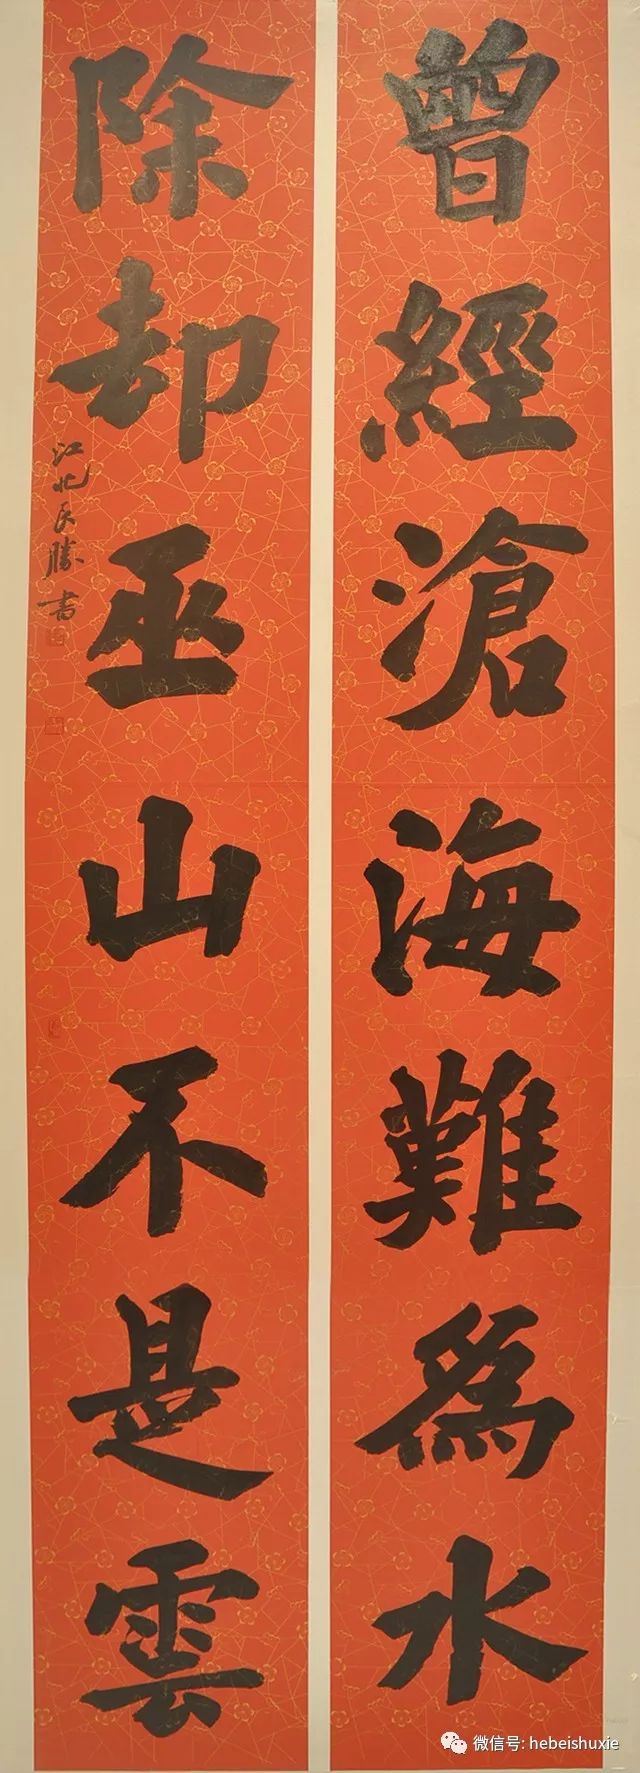 曾經滄海難爲水
除却巫山不是雲
江北民勝書
微信号: hebeishuxie